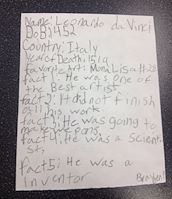 Name: Leonardo da Vinci
DoB: 1452
Country: Italy
Year of Death: 1519
favorite Art: Mona Lisa
fact 1: He was one of
the Best artist
fact 2: He did not finish
all his work.
fact 3: He was going to
make weapons.
fact 4: He was a Scien-
st.
fact 5: He was a
inventor